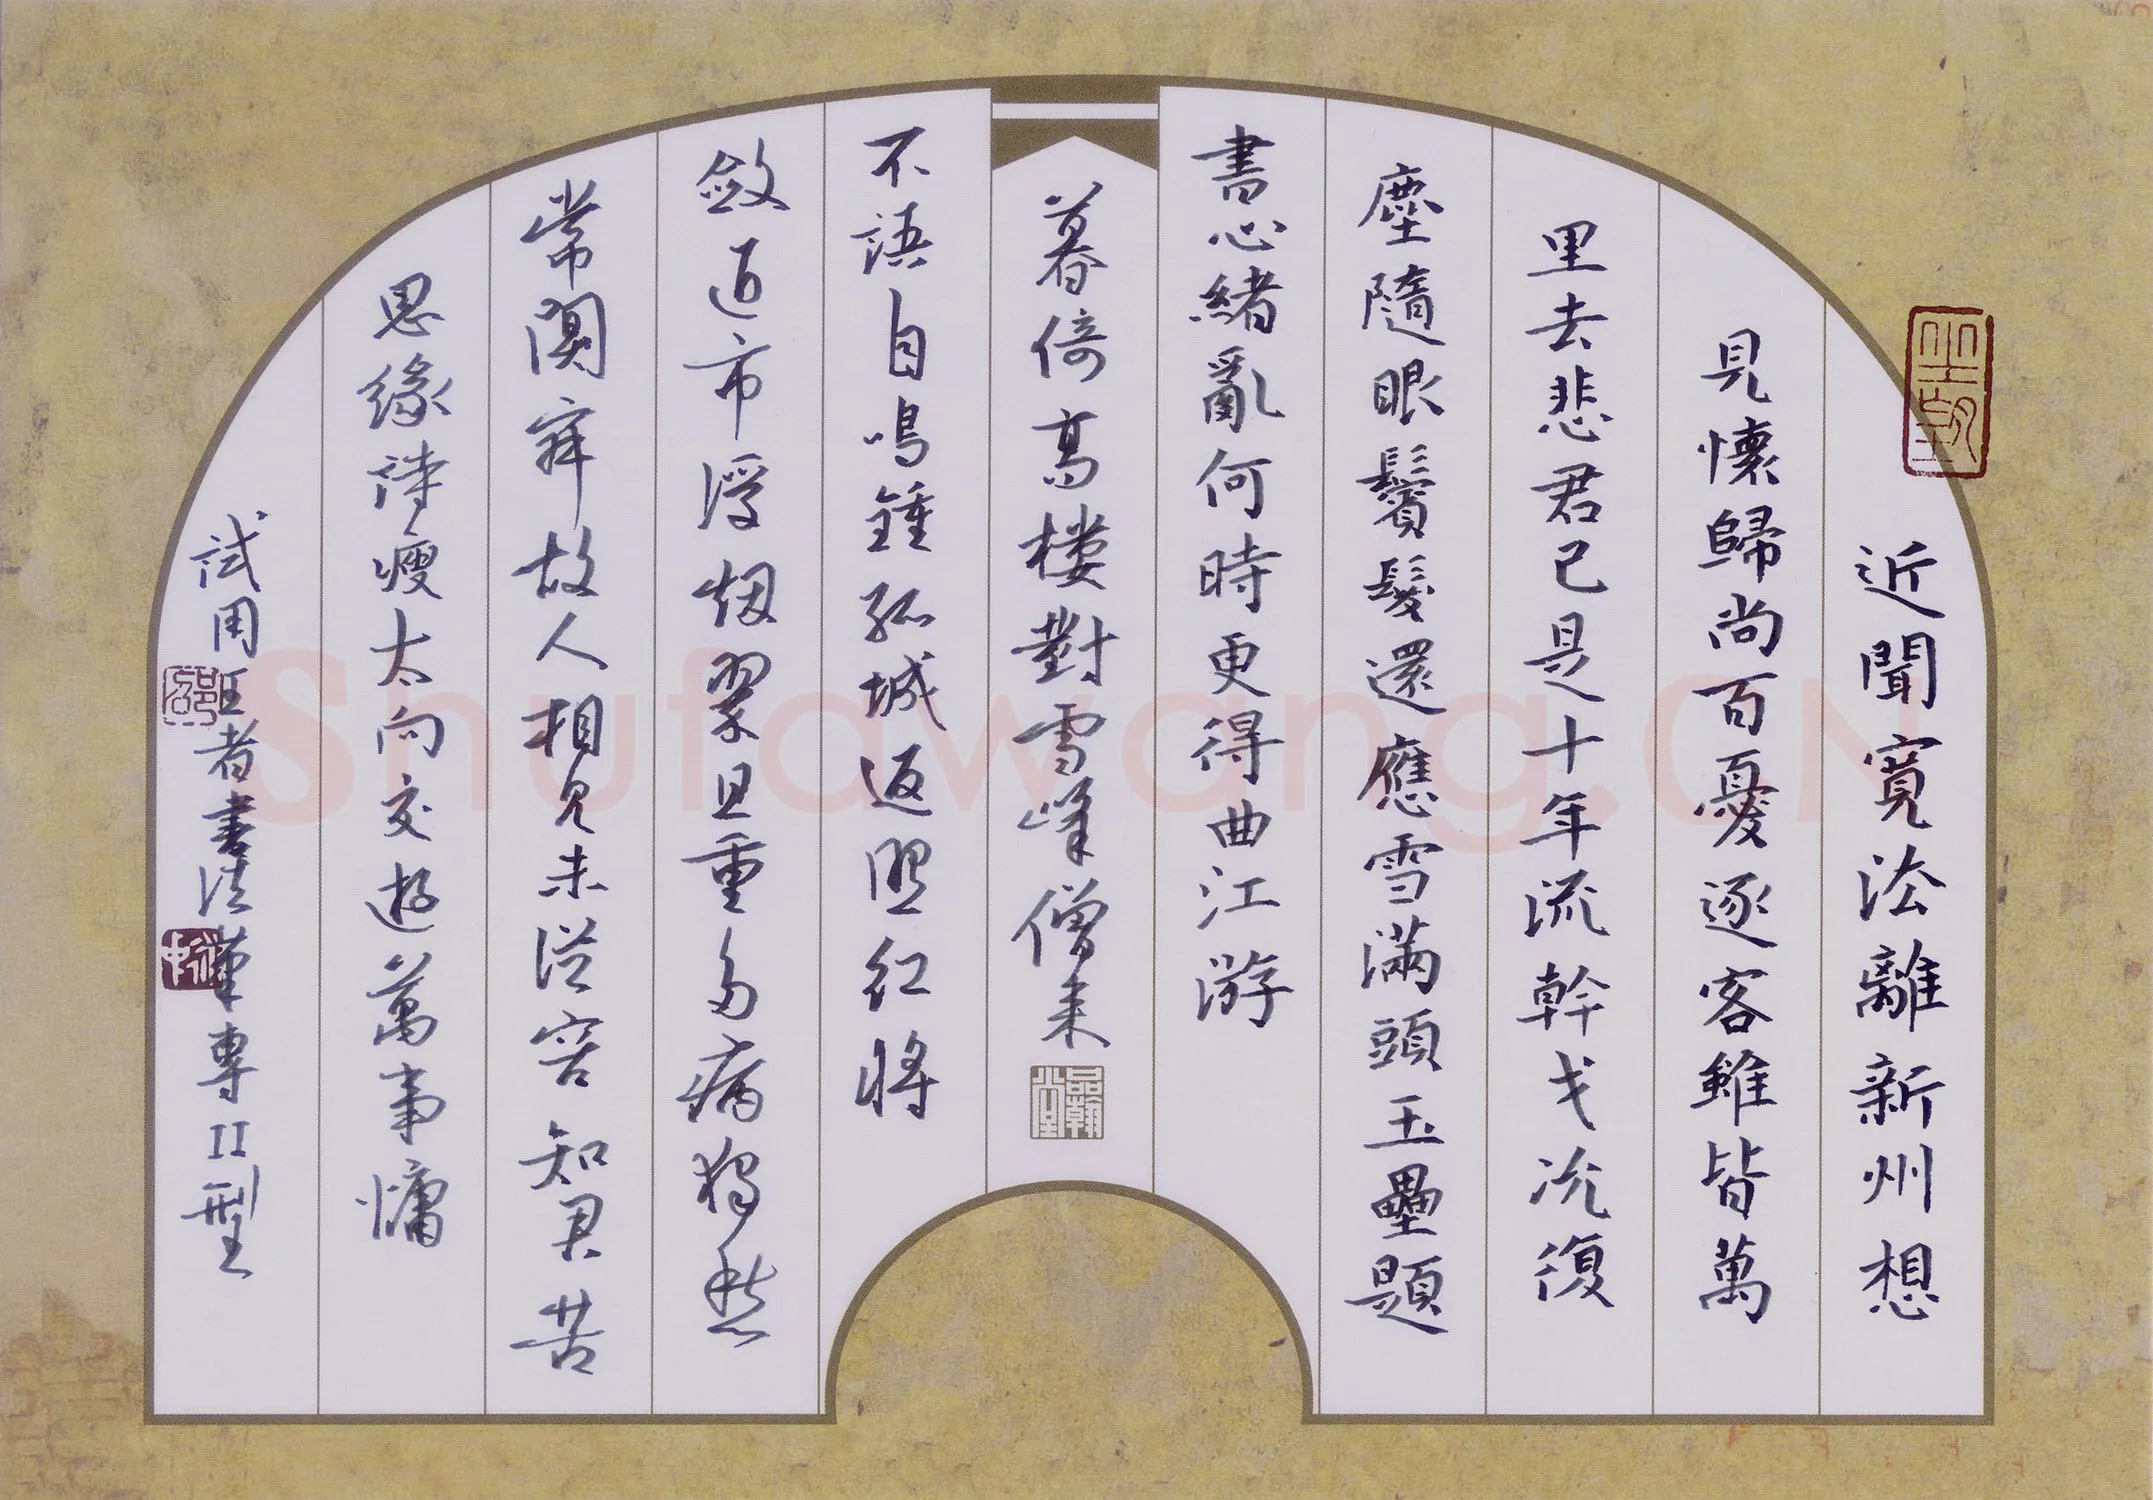 近聞寬法離新州想
見懷歸尚百憂逐客雖皆萬
里去悲君已是十年流幹戈況復
塵隨眼鬢髮還應雪滿頭玉壘題
書心緒亂何時更得曲江游
暮倚高樓對雪峰僧来
不語自鳴鍾孤城返照红將
斂近市浮烟翠且重多病獨愁
常闃寂故人相見未從容知君苦
思缘詩瘦太向交遊萬事慵
試用王者書法筆專II型
Shufawang.CN